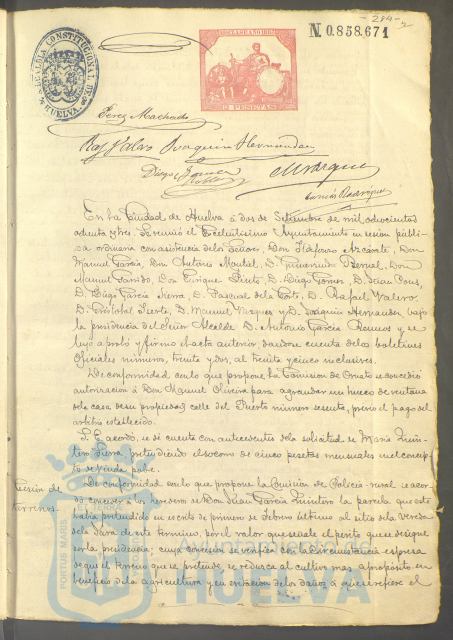 294
N.0.858.671
ALCALDIA CONSTITUCIONAL DE HUELVA
2 PESETAS
Perez Machado
Raf Valero Joaquin Hernandez
Diego Gomez Marquez
Garcia Rodriguez
En la Ciudad de Huelva á dos de Setiembre de mil ochocientos
ochenta y tres. Se reunió el Excelentisimo Ayuntamiento en sesion públi-
ca ordinaria con asistencia de los Señores, Don Ildefonso Azcárate, Don
Manuel Garcia, Don Antonio Mutiel, D. Bernal, Don
Manuel Garrido, Don Enrique Pinto, D. Diego Gomez, D. Juan Cons,
D. Diego Garcia Sierra, D. Pascual de la Corte, D. Rafael Valero,
D. Cristobal Fuerte, D. Manuel Marquez y D. Joaquin Hernandez bajo
la presidencia del Señor Alcalde D. Antonio Garcia Ramos y se
leyó aprobó y firmó el acta anterior dandose cuenta de los boletines
oficiales números, treinta y dos, al treinta y cinco inclusives.
De conformidad con lo que propone la Comision de Ornato se concedió
autorizacion á Don Manuel Oliveira para agrandar un hueco de ventana
de la casa de su propiedad calle del Puerto número sesenta, previo el pago del
arbitrio establecido.
S. E. acordó, se dé cuenta con antecedentes de la solicitud de Maria Quin-
tero Sierra pretendiendo el socorro de cinco pesetas mensuales en el concep-
to de viuda pobre.
Cesion de terrenos.
De conformidad con lo que propone la Comision de Policia rural se acor-
dó conceder á los herederos de Don Juan Garcia Quintero la parcela que este
habia pretendido en escrito de primero de Febrero último al sitio de la Vereda
de la Dara de este término, por el valor que señale el perito que se designe
por la presidencia; cuya concesion se verifica con la circunstancia espresa
de que el terreno que se pretende, se reduzca al cultivo mas apropósito en
beneficio de la agricultura y en evitacion de los daños á que se refiere el
PORTUS MARIS
Ayuntamiento de
HUELVA